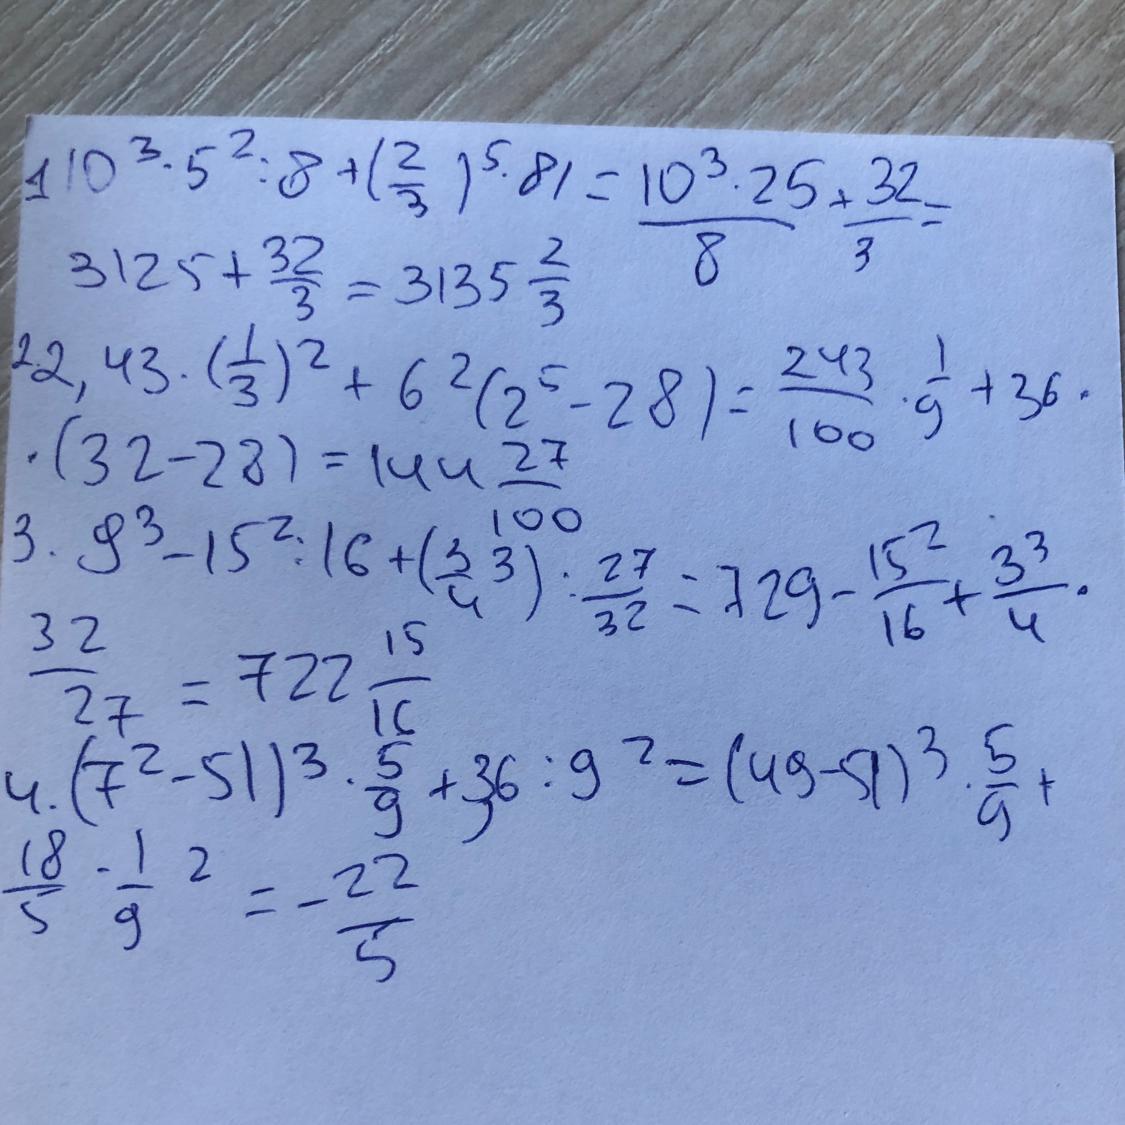 1 10³·5²:8+(2/3)⁵·81=10³·25/8+32/3=
3125+32/3=3135 2/3
2.2,43·(1/3)²+6²(2⁵-28)=243/100·1/9+36·
·(32-28)=144 27/100
3. 9³-15²:16+(3/4 3):27/32=729-15²/16+3³/4·
32/27=722 15/16
4.(7²-51)³·5/9+36:9²=(49-51)³·5/9+
18/5·1/9²=-22/5